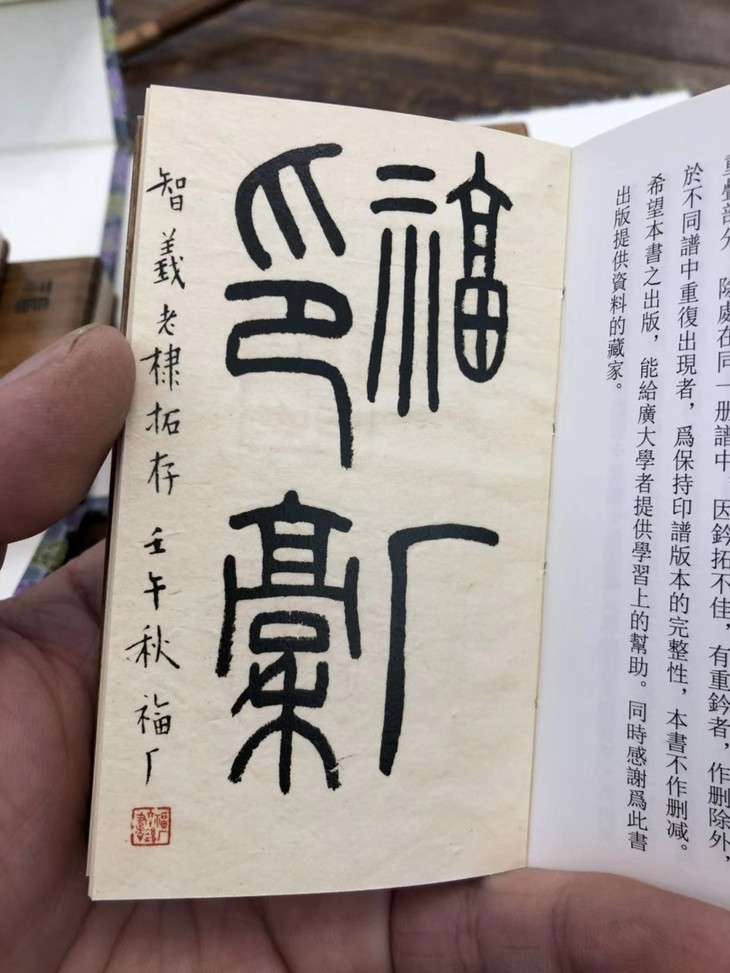 重疊部分，除處在同一册譜中，因鈐拓不佳，有重鈐者，作删除外，
於不同譜中重復出現者，爲保持印譜版本的完整性，本書不作删减。
希望本書之出版，能給廣大學者提供學習上的幫助。同時感謝爲此書
出版提供資料的藏家。
福厂
印稾
智義老棣拓存 壬午秋 福厂